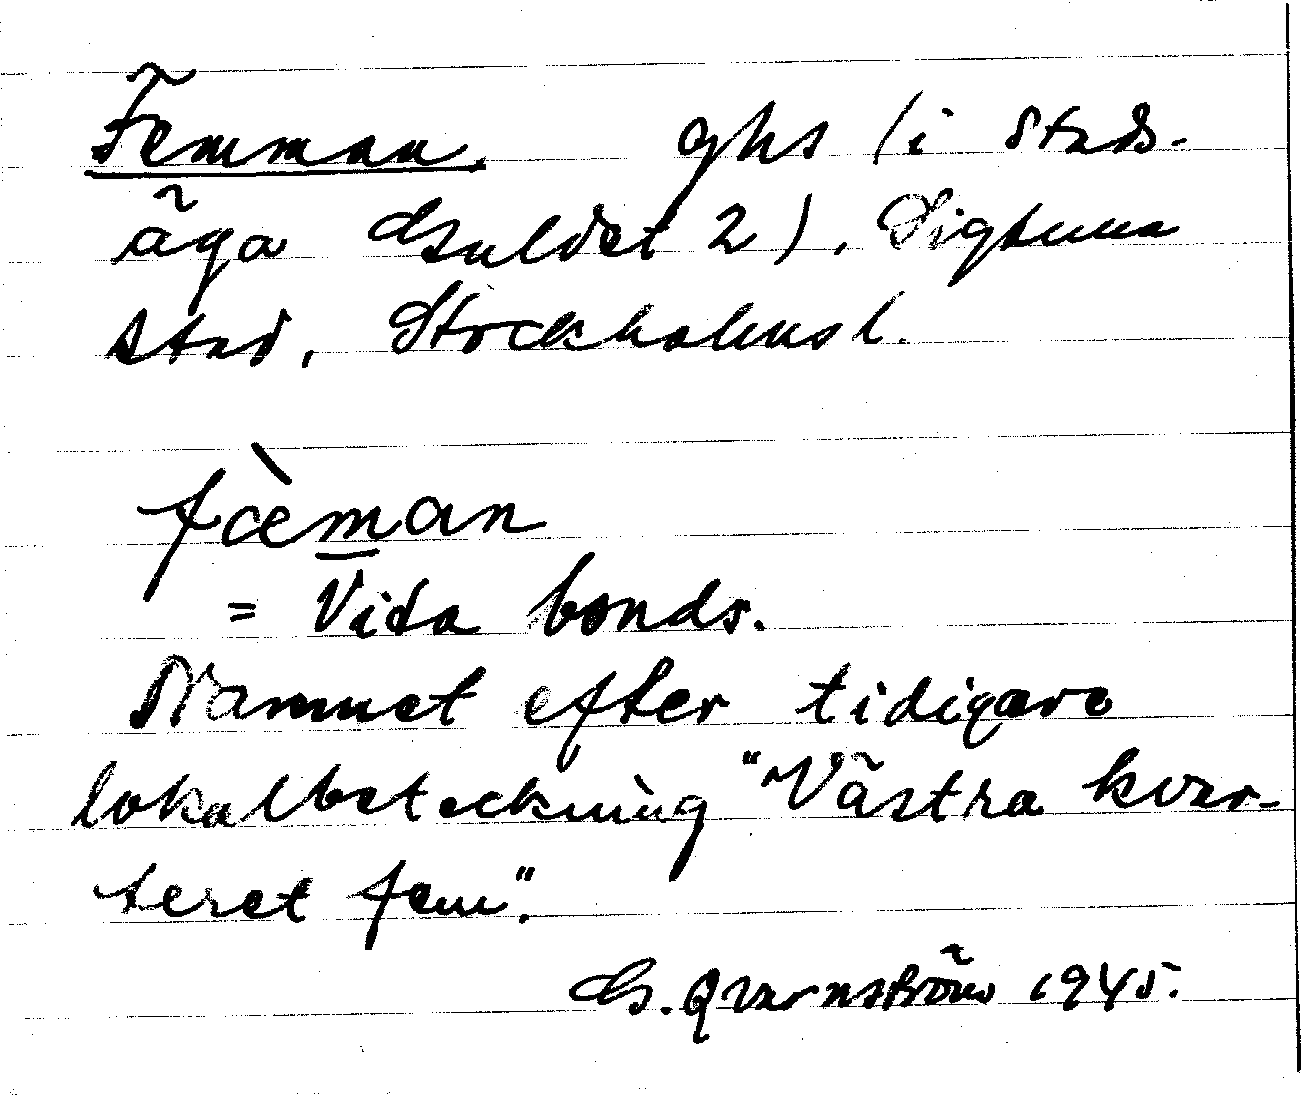 Femman. ghs (i stads-
äga Guldet 2), Sigtuna
stad, Stockholmsl.
fæ̀man
= Vita bonds.
Namnet efter tidigare
lokalbeteckning "Västra kvar-
teret fem".
G. Qvarnström 1945.